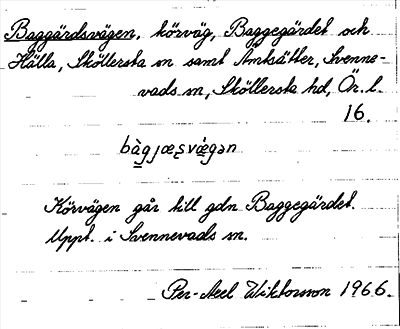 Baggärdsvägen, körväg, Baggegärdet och
Hälla, Sköllersta sn samt Amtsätter, Svenne-
vads sn, Sköllersta hd, Ör. l.
16.
bàgjæʂvæ̀gən
Körvägen går till gdn Baggegärdet.
Uppt. i Svennevads sn.
Per-Axel Wiktorsson 1966.